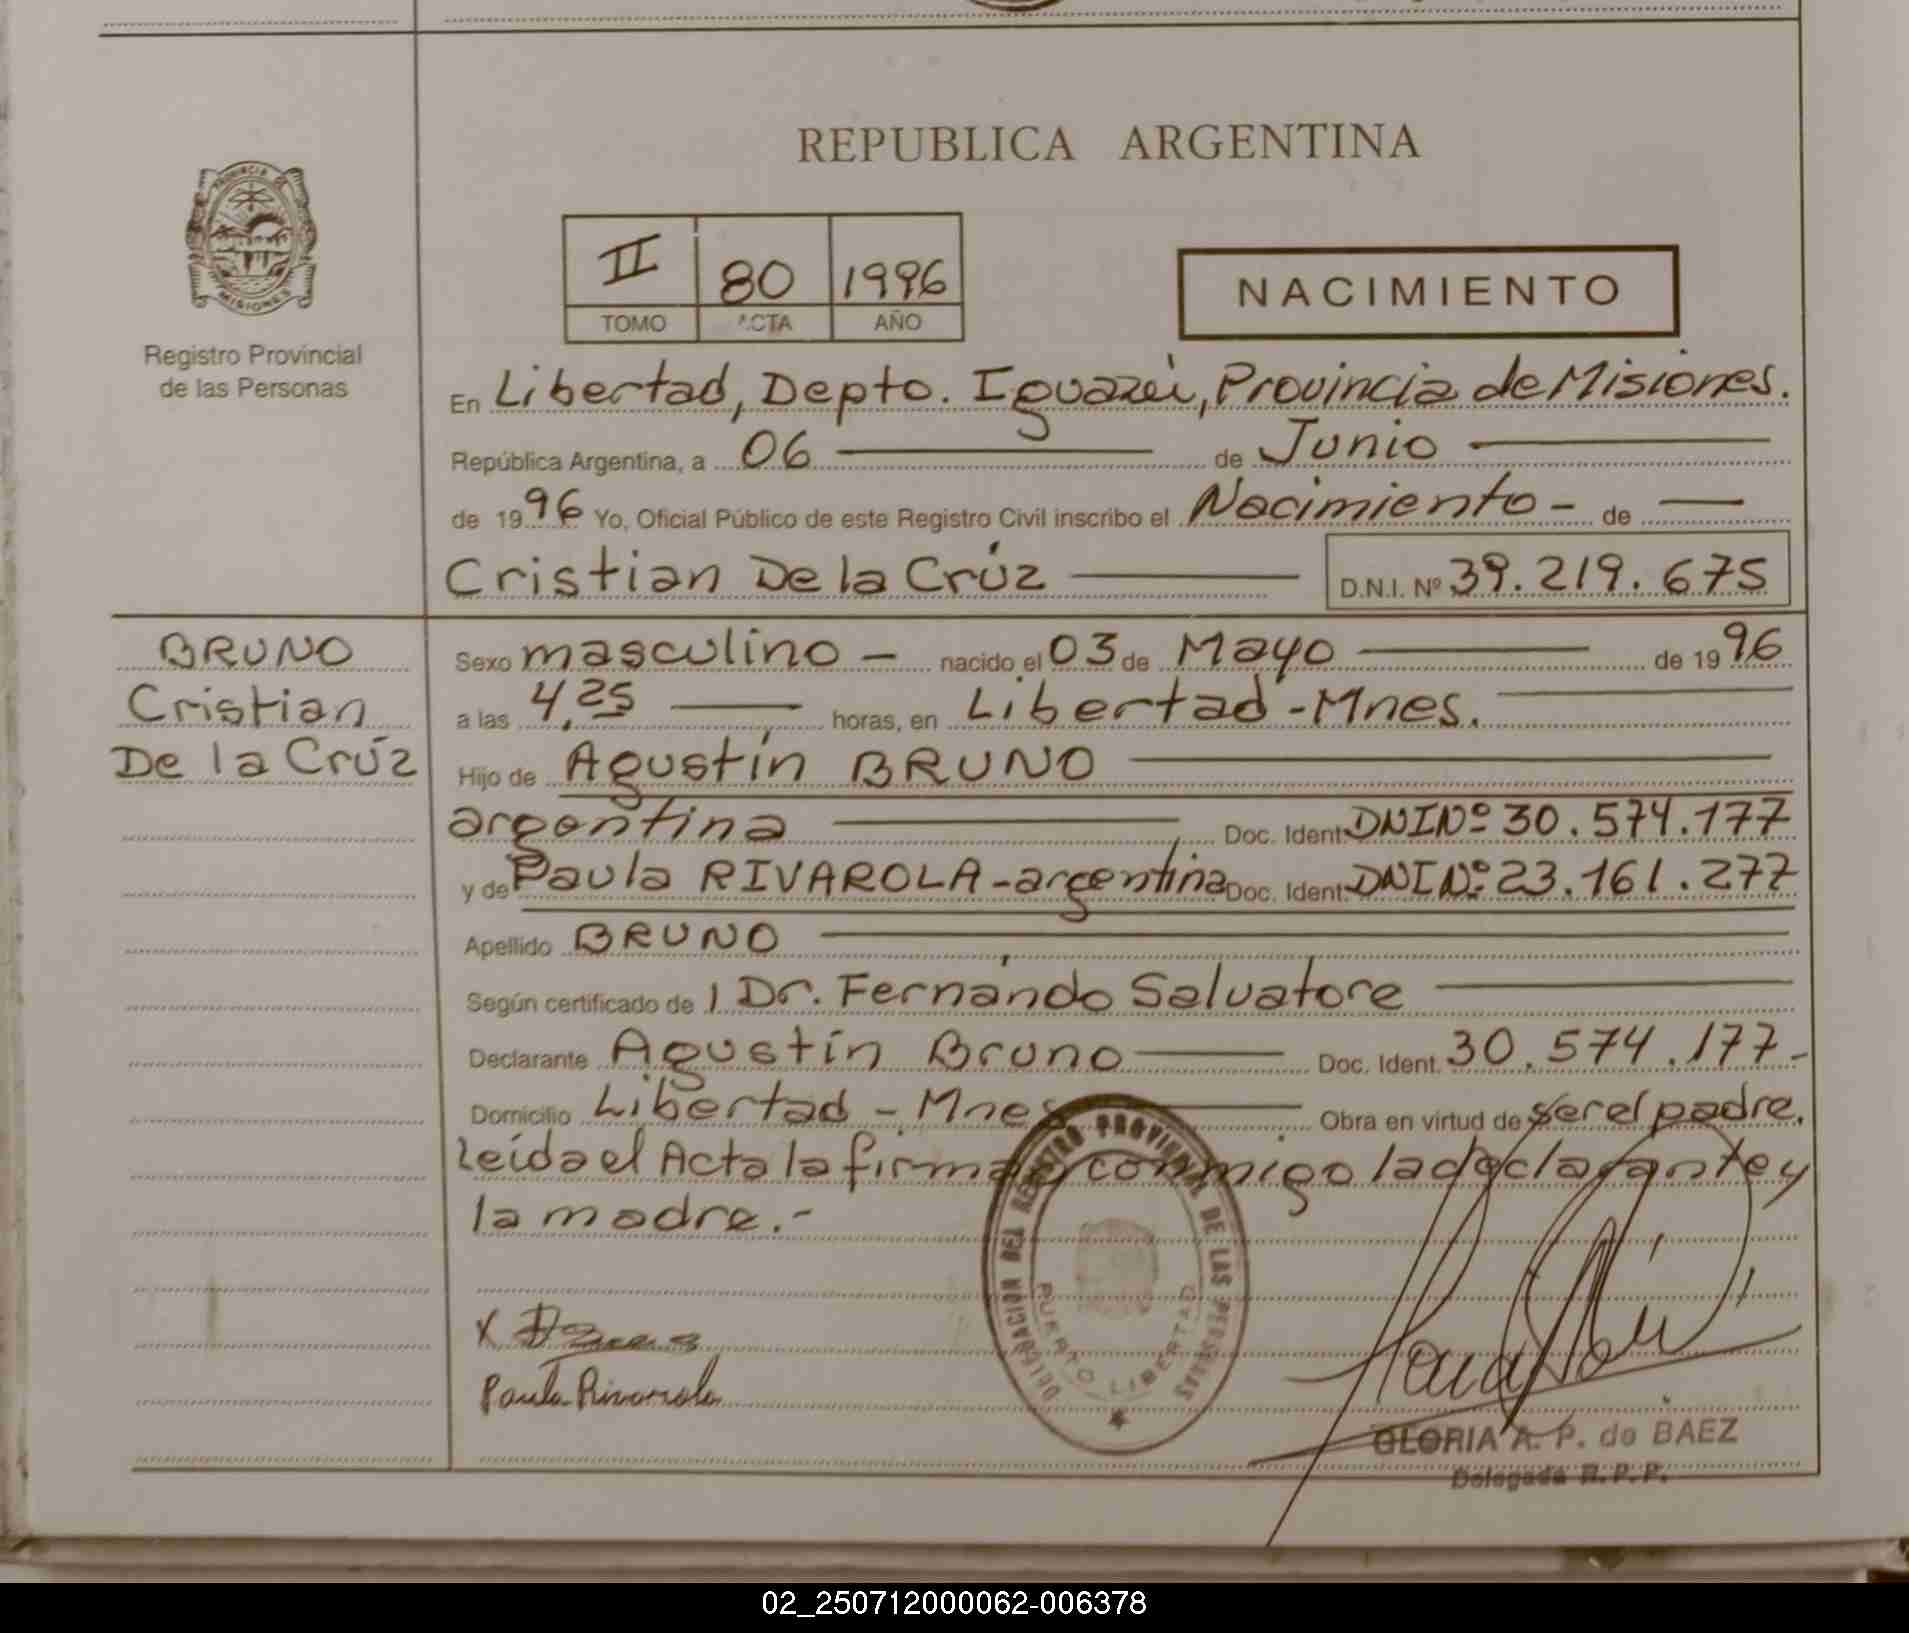 REPUBLICA ARGENTINA
PROVINCIA DE
MISIONES
Registro Provincial
de las Personas
II 80 1996
TOMO ACTA AÑO
NACIMIENTO
En Libertad, Depto. Iguazú, Provincia de Misiones.
República Argentina, a 06 de Junio
de 1996 Yo, Oficial Público de este Registro Civil inscribo el Nacimiento - de
Cristian De la Crúz D.N.I. Nº 39.219.675
BRUNO
Cristian
De la Crúz
Sexo masculino - nacido el 03 de Mayo de 1996
a las 4,25 horas, en Libertad - Mnes.
Hijo de Agustín BRUNO
argentina Doc. Ident. DNI Nº 30.574.177
y de Paula RIVAROLA - argentina Doc. Ident. DNI Nº 23.161.277
Apellido BRUNO
Según certificado de / Dr. Fernándo Salvatore
Declarante Agustín Bruno Doc. Ident. 30.574.177-
Domicilio Libertad - Mnes Obra en virtud de ser el padre.
Leída el Acta la firman conmigo la declarante y
la madre.-
DELEGACION DEL REGISTRO PROVINCIAL DE LAS PERSONAS
PUERTO LIBERTAD
X
Paula Rivarola
GLORIA A. P. de BAEZ
Delegada R.P.P.
02_250712000062-006378